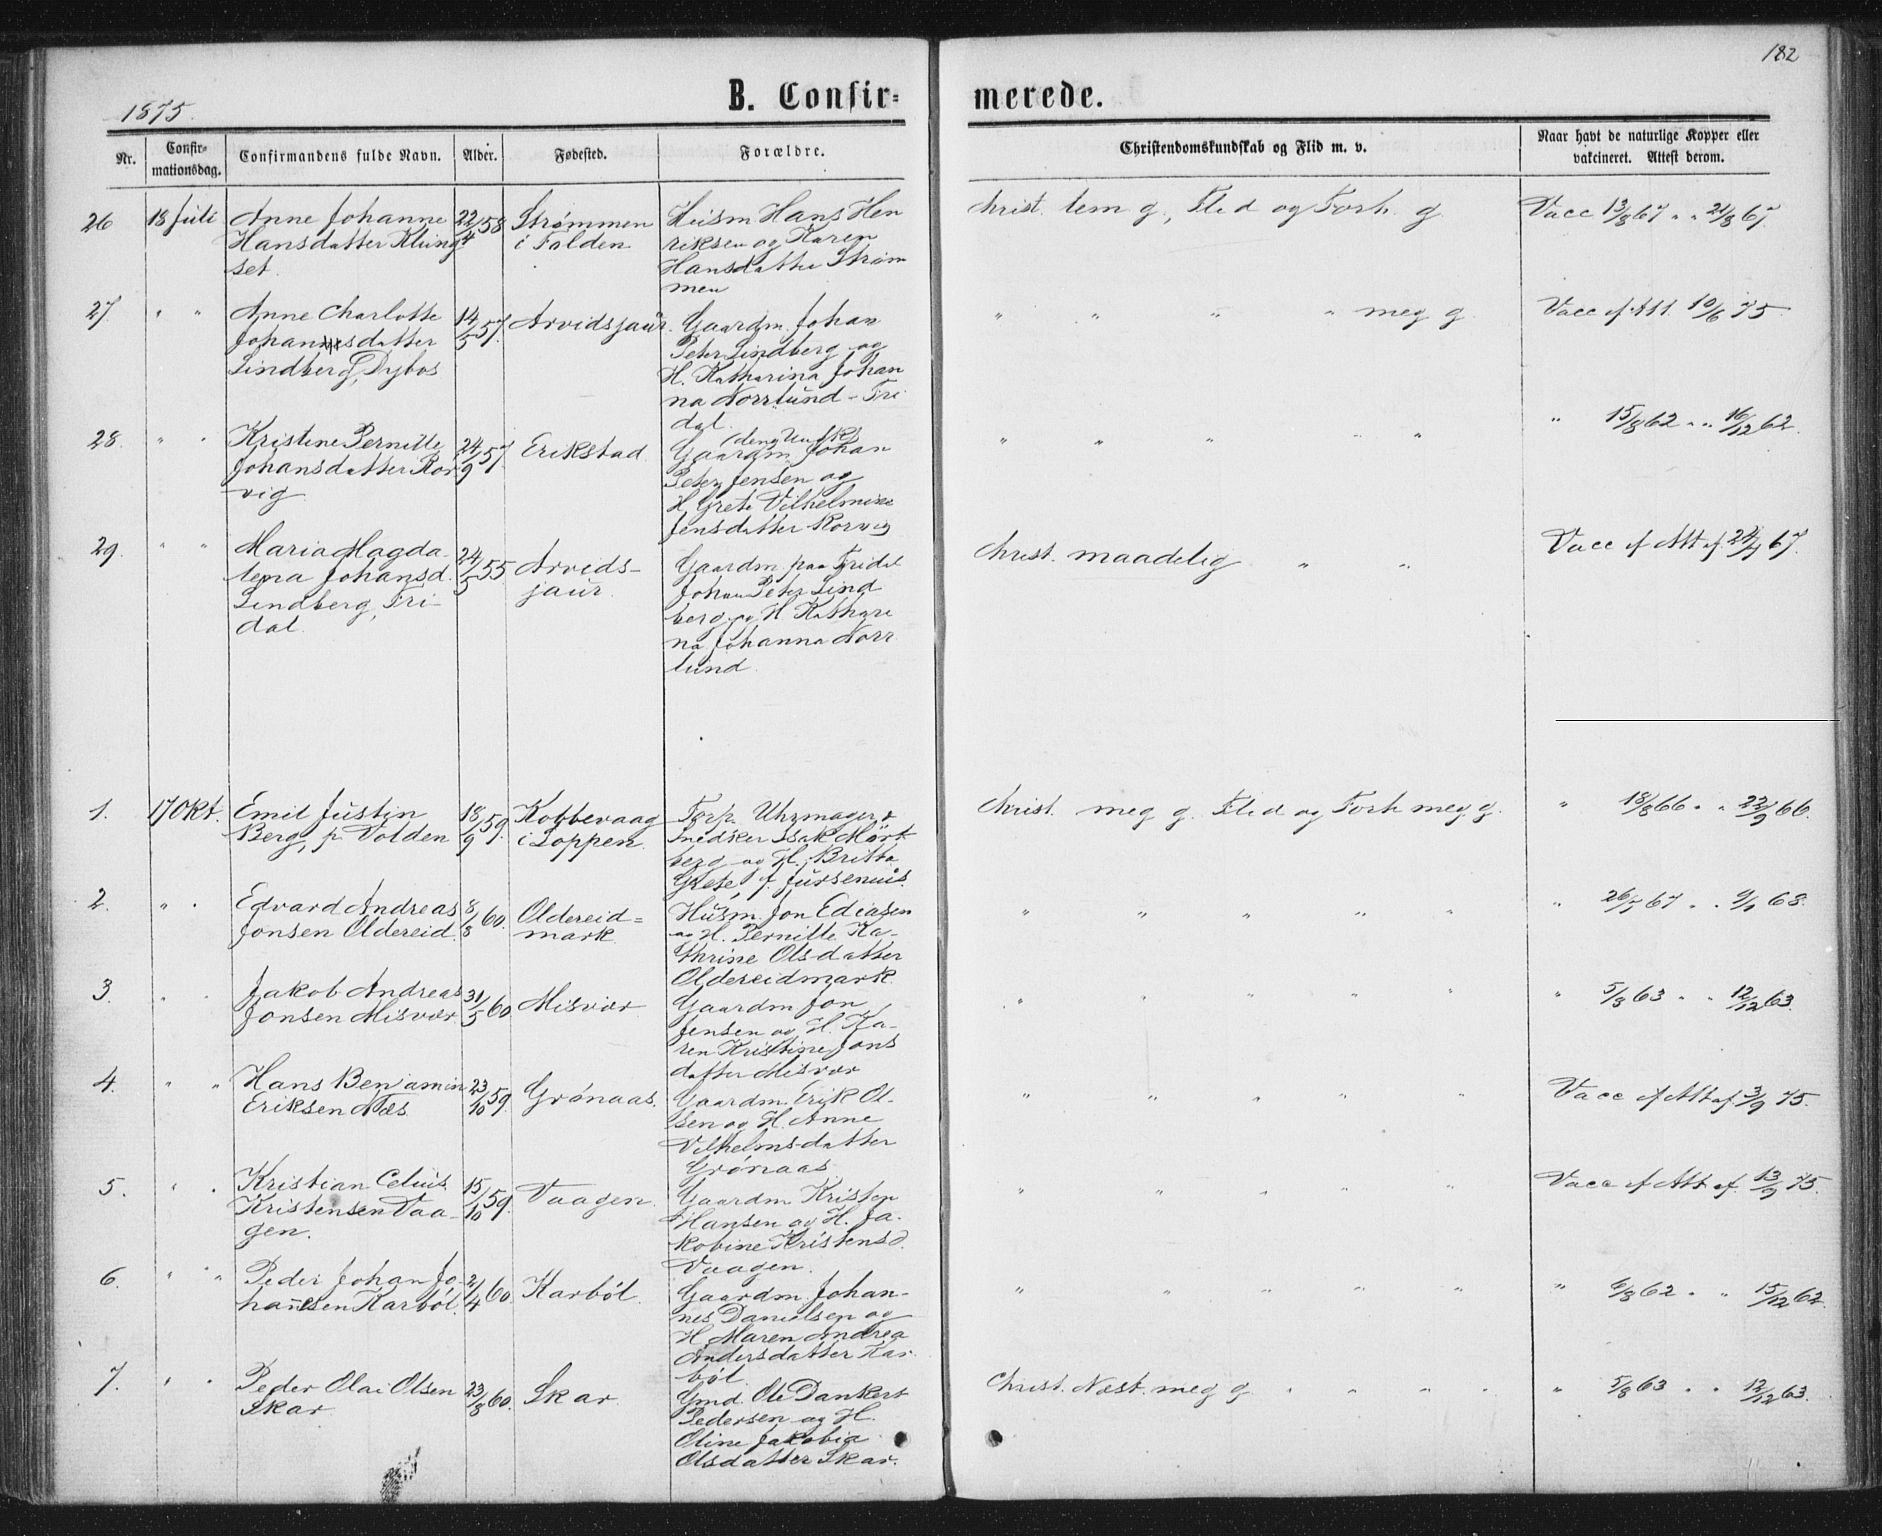 182
1875.
B. Confir=
merede.
Nr.
Confir-
mationsdag.
Confirmandens fulde Navn.
Alder.
Fødested.
Forældre.
Christendomskundskab og Flid m. v.
Naar havt de naturlige Kopper eller
vakcineret. Attest derom.
26 18 Juli Anne Johanne 22/4 58 Strømmen
Hansdatter Klung i Folden
set.
Hans Hen
riksen og Karen
Hansdatter Strøm
men
Christ. tem g., Flid og Forh. g. Vacc 13/8 67 " " 21/8 67.
27. " " Anne Charlotte 14/5 57. Arvidsjaur.
Johannesdatter
Lindberg, Dybos
Gaardm. Johan
Peter Lindberg og
H. Katharina Johan
na Norrlund - Tri
dal.
" " " " meg g. Vacc if. Att. 10/6 75.
28. " " Kristine Pernille 24/9 57. Erikstad
Johansdatter Ror
vig.
Gaardm. Johan
Peter Jensen og
H. Grete Vilhelmine
Jensdatter Rorvig
" " " " " " 15/8 62 " " 16/12 62.
29. " " Maria Magda- 24/5 55 Arvids-
lena Johansd. jaur.
Lindberg, Tri-
dal.
Gaardm paa Tridal
Johan Peter Lind
berg og H. Kathari
na Johanna Norr
lund.
Christ. maadelig " " Vacc if Att af 24/4 67.
1. 17 Okt. Emil Justin 18/9 59. Kobbevaag
Berg, p. Volden i Loppen.
Uhrmager &
Snedker Isak Mört
berg og H. Britta
Grete, f. Jursenius.
Christ. meg g. Flid og Forh meg g. " 18/8 66 " " 22/9 66.
2. " " Edvard Andreas 8/8 60. Oldereid=
Jonsen Oldereid. mark.
Husm. Jon Ediasen
og H. Pernille Ka-
thrine Olsdatter
Oldereidmark.
" " " " " " 67 " " 68.
3. " " Jakob Andreas 31/5 60 Misvær
Jonsen Misvær
Gaardm Jon
Jensen og H. Ka-
ren Kristine Jons
datter Misvær
" " " " " " 5/8 63 " " 12/12 63.
4. " " Hans Benjamin 23/10 59. Grønaas.
Eriksen Næs
Gaardm. Erik Ol-
sen og H. Anne
Vilhelmsdatter
Grønaas
" " " " " Vacc if Att af 3/9 75.
5. " " Kristian Celius 15/10 59. Vaagen.
Kristensen Vaa-
gen.
Gaardm Kristen
Hansen og H. Ja-
kobine Kristensd.
Vaagen.
" " " " " Vacc if Att af. 13/9 75.
6. " " Peder Johan Jo- 2/4 60 Karbøl.
hansen Karbøl.
Gaardm. Johan-
nes Danielsen og
H. Maren Andrea
Andersdatter Kar-
bøl.
" " " " " " 6/8 62 " " 15/12 62.
7. " " Peder Olai Olsen 23/8 60. Skar.
Skar.
Gmd. Ole Dankert
Pedersen og H.
Oline Jakobia
Olsdatter Skar.
Christ. Næst. meg g. " " " " " 5/8 63 " " 12/12 63.